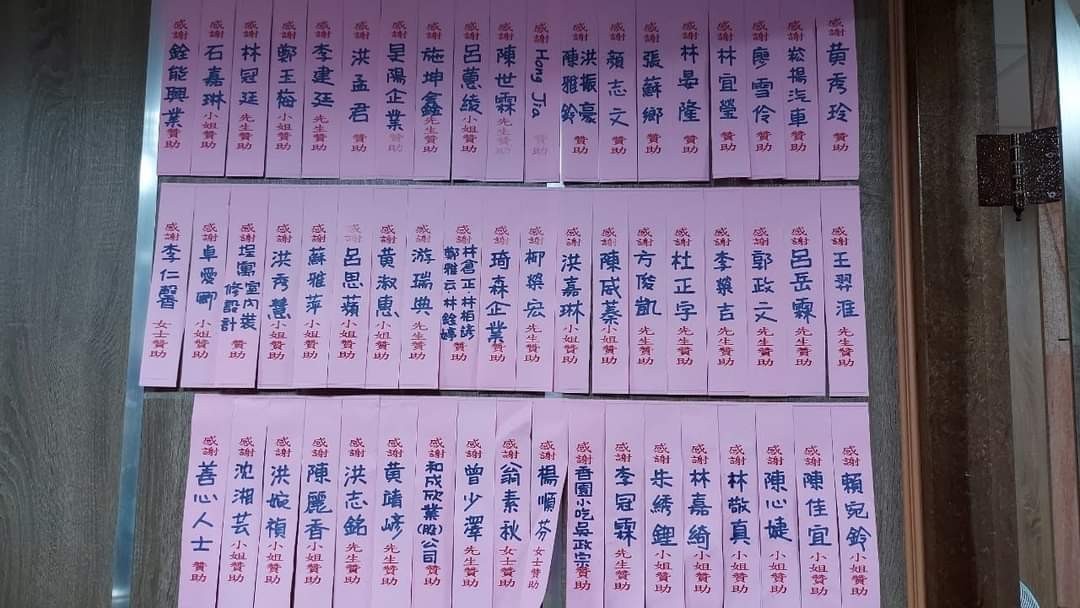 感謝黃秀玲贊助
感謝崧揚汽車贊助
感謝廖雪伶贊助
感謝林宜瑩贊助
感謝林晏隆贊助
感謝張蘇鄉贊助
感謝顏志文贊助
感謝洪振豪陳雅鈴贊助
感謝Hong Jia贊助
感謝陳世霖先生贊助
感謝呂蕙綾小姐贊助
感謝施坤鑫先生贊助
感謝昱陽企業贊助
感謝洪孟君贊助
感謝李建廷先生贊助
感謝鄭玉梅小姐贊助
感謝林冠廷先生贊助
感謝石嘉琳小姐贊助
感謝銓能興業贊助
感謝王羿淮先生贊助
感謝呂岳霖先生贊助
感謝郭政文先生贊助
感謝李築吉先生贊助
感謝杜正字先生贊助
感謝方俊凱先生贊助
感謝陳葳蓁小姐贊助
感謝洪嘉琳小姐贊助
感謝柳築宏先生贊助
感謝琦森企業贊助
感謝林倉正林栢諺鄭雅云林詮婷贊助
感謝游瑞典先生贊助
感謝黃淑惠小姐贊助
感謝呂思蘋小姐贊助
感謝蘇雅萍小姐贊助
感謝洪秀慧小姐贊助
感謝埕寓室內裝修設計贊助
感謝卓愛卿小姐贊助
感謝李仁馨女士贊助
感謝賴宛鈴小姐贊助
感謝陳佳宜小姐贊助
感謝陳心婕小姐贊助
感謝林敬真小姐贊助
感謝林嘉綺小姐贊助
感謝朱綉鋰小姐贊助
感謝李冠霖先生贊助
感謝香園小吃吳政宗贊助
感謝楊順芬女士贊助
感謝翁素秋女士贊助
感謝曾少澤先生贊助
感謝和成欣業(股)公司贊助
感謝黃靖嵃先生贊助
感謝洪志銘先生贊助
感謝陳麗香小姐贊助
感謝洪婉禎小姐贊助
感謝沈湘芸小姐贊助
感謝善心人士贊助